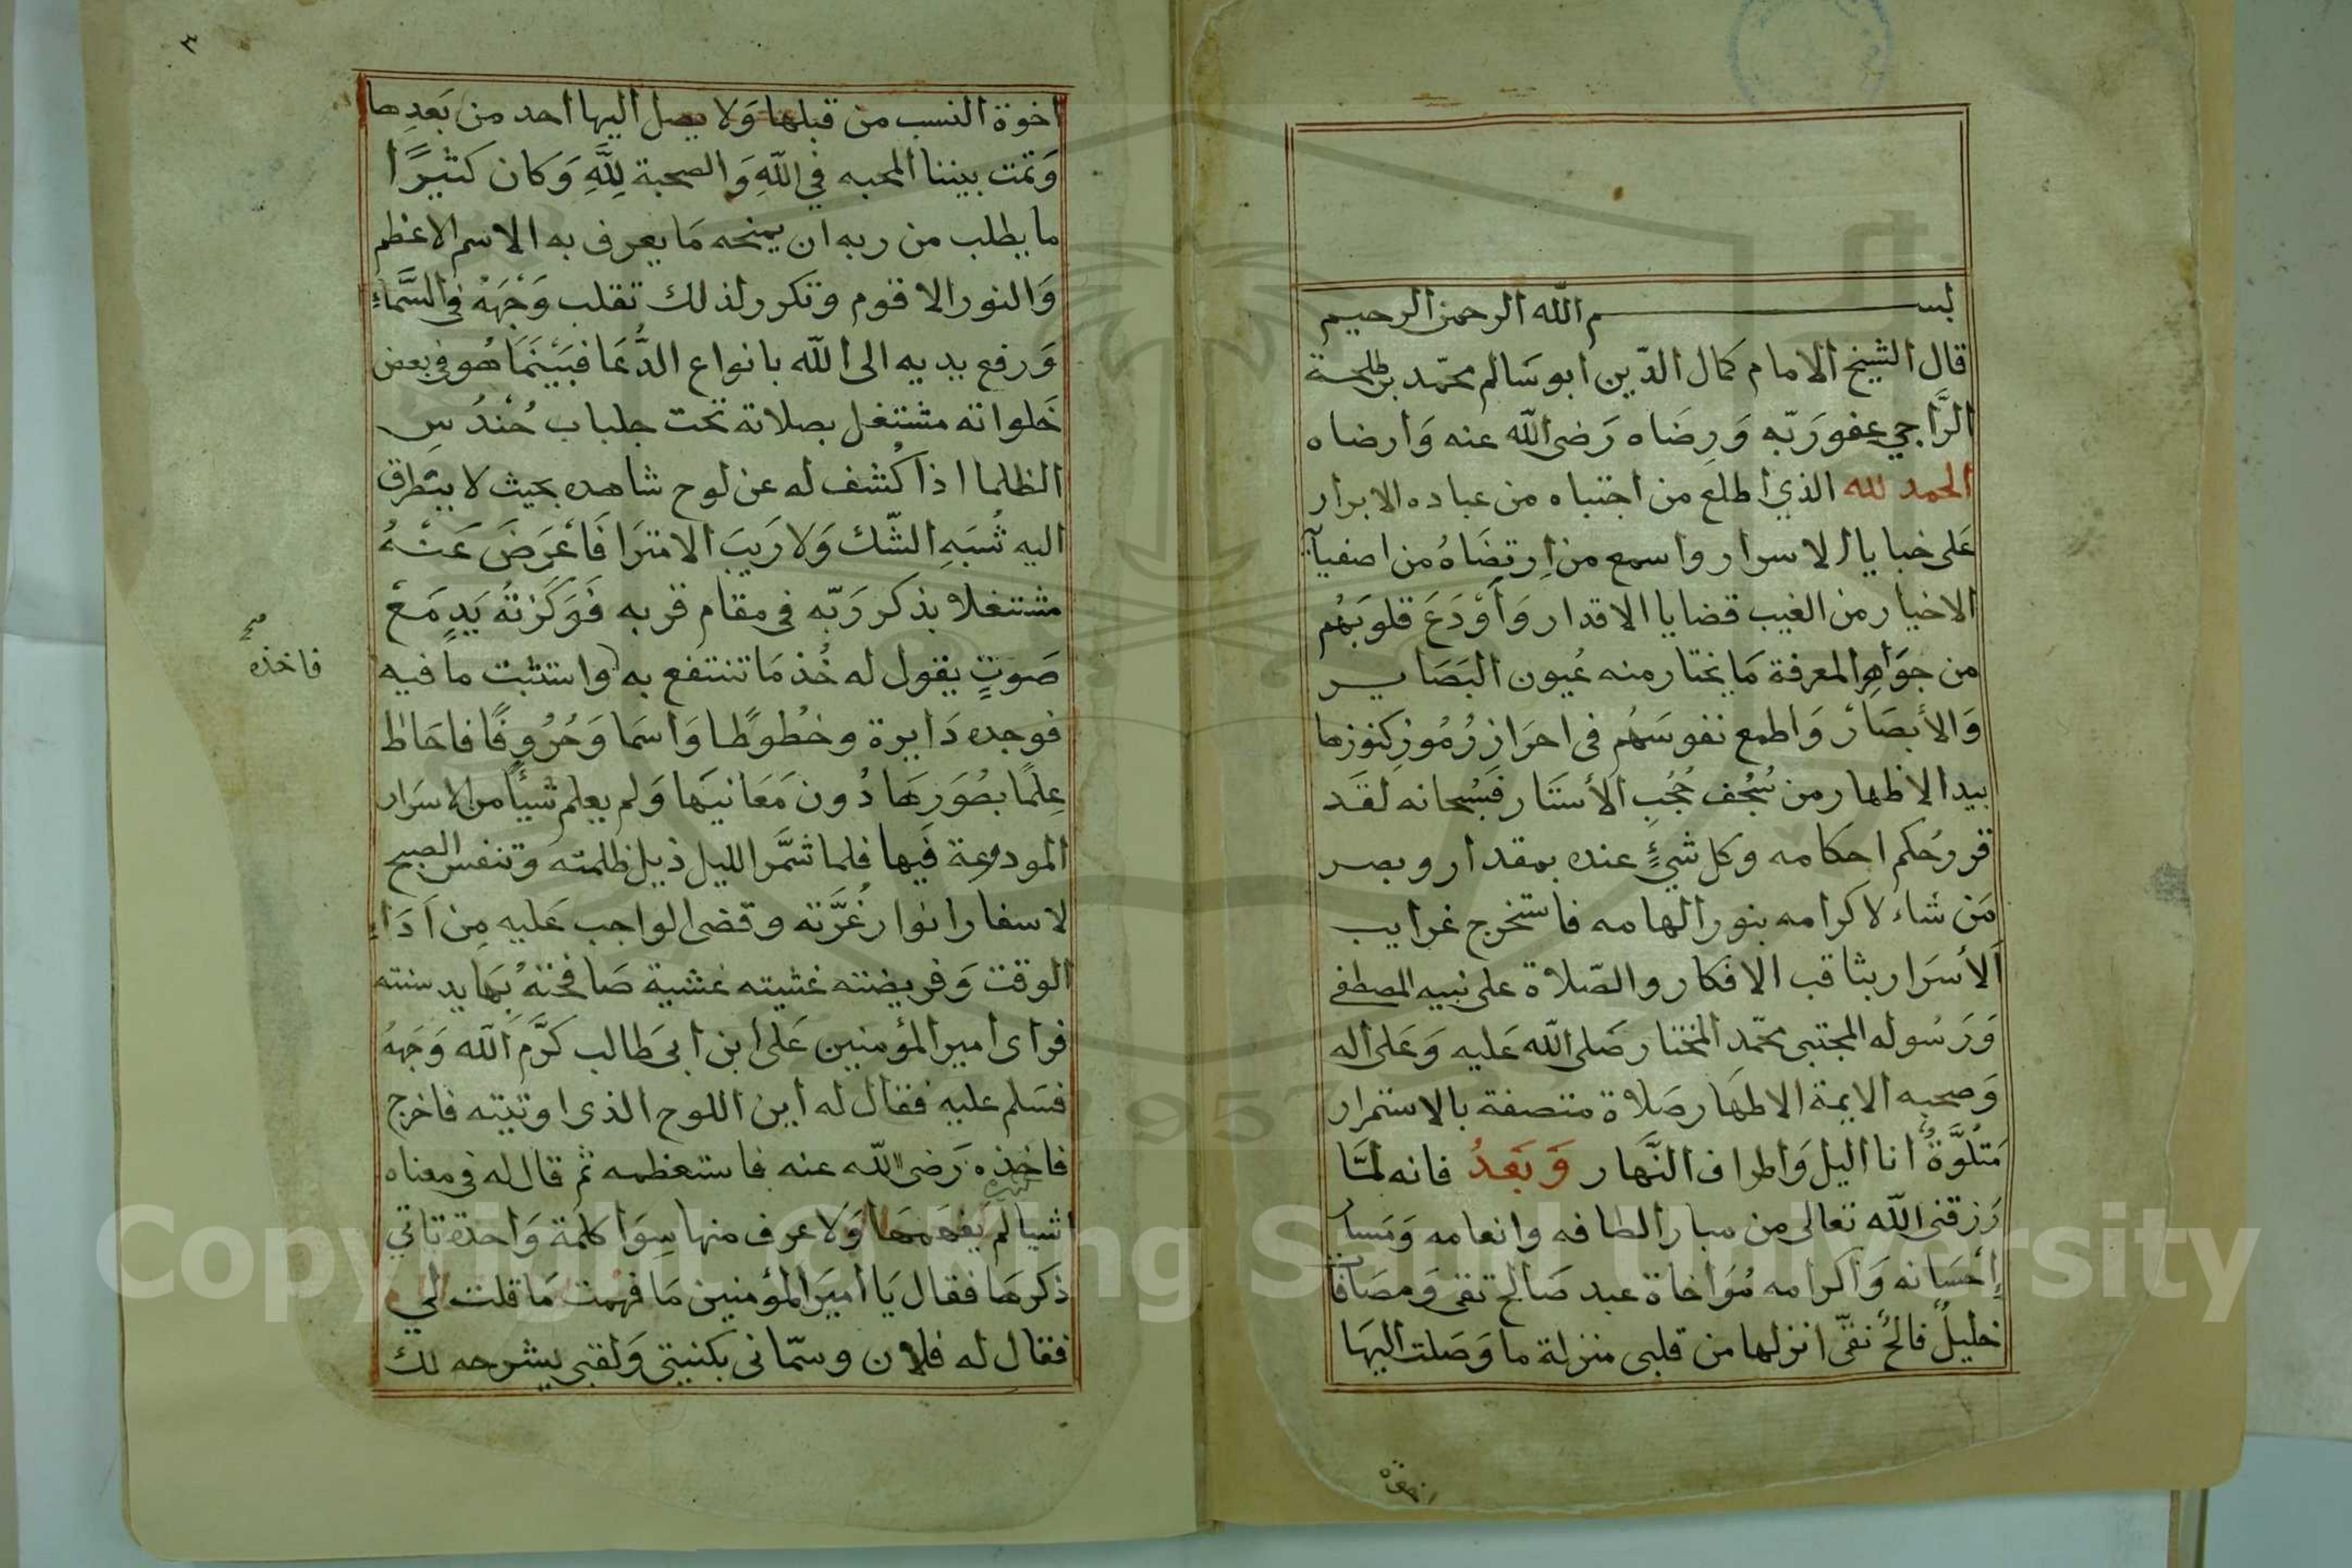 بسم الله الرحمن الرحيم
قال الشيخ الامام كمال الدّين ابو سَالم محمّد بن طلحة
الرَّاجي عفو رَبّه وَرِضَاه رَضى الله عنه وَارضاه
الحمد لله الذي اطلع من اجتباه من عباده الابرار
عَلى خبايا الاسرار واسمع من اِرتضَاهُ من اصفيآئه
الاخيار من الغيب قضايا الاقدار وَأوْدَعَ قلوبَهُم
من جَوَاهِر المعرفة مَا يختار منه عُيون البَصَاير
وَالأبصَار وَاطمع نفوسَهُم في احرَاز رُمُوز كنوزها
بيد الاظهار من سُجُف حُجُبِ الأستَار فسُبحانه لقَد
قرر حُكم احكامه وكل شيءٍ عنده بمقدار وبصر
مَن شاء لاكرامه بنور الهامه فاستخرج غرايب
الأسرَار بثاقب الافكار والصّلاة على نبيه المصطفى
وَرَسُوله المجتبى محمّد المختار صَلى الله عَليه وَعَلى اله
وَصحبه الايمة الاطهَار صَلاة متصفة بالاستمرار
مَتلُوَّةً انا اليل وَاطراف النَّهَار وَبَعدُ فانه لمَّا
رَزقنى الله تعالى من مبار الطافه وانعامه وَمَسار
إحسَانه وَاكرامه مُوَاخاة عبد صَالح تقى وَمصَافاة
خليلٌ فالحٌ نقىّ انزلها من قلبى منزلة ما وَصَلت اليهَا
٣
اخوة النسب من قبلها وَلا يصل اليها احد من بَعدِها
وَتمت بيننا المحبه في اللهِ وَالصحبة لِلَّهِ وَكان كثيرًا
ما يطلب من ربه ان يمنحه مَا يعرف به الاسم الاعظم
وَالنور الاقوم وتكرر لذلك تقلب وَجْهَهُ فى السَّمَاءِ
وَرفع يديه الى الله بانواع الدُّعَا فبَيْنَمَا هُو فى بعض
خَلواته مشتغل بصلاته تحت جلباب حُنْدُسِ
الظلما اذا كُشف له عن لوح شاهده بحيث لا يتطرق
اليه شُبَهِ الشّك وَلا رَيبَ الامترَا فَأعْرَضَ عَنْهُ
مشتغلا بذكر رَبّه في مقام قربه فَوَكَزَتهُ يَدٍ مَعْ
صَوتٍ يقول له خُذ مَا تنتفع به واستثبت ما فيه
صح
فاخذه
فوجده دَايرة وخُطُوطًا وَاسمَا وَحُرُوفًا فاحَاط
عِلمًا بصُوَرِهَا دُون مَعَانيَها وَلم يعلم شيئًا من الاسرَار
المودوعة فيها فلما شمَّر الليل ذيل ظلمته وتنفس الصبح
لاسفار انوار غُرَّته وقضى الواجب عَليه مِن اَدَاءِ
الوقت وَفريضته غشيته غشية صَافحَتهُ بهَا يد سنته
فراى امير المؤمنين عَلى ابن ابى طالب كرَّم الله وَجهَهُ
فسَلم عليه فقال له اين اللوح الذى اوتيته فاخرج
فاخذه رَضى الله عنه فاستعظمه ثم قال له فى معناه
اشيا كثيرة لم يَفهَمهَا وَلا عرف منها سِوَا كلمَة وَاحدة ياتي
ذكرهَا فقال يَا اميَر المؤمنين مَا فهمت مَا قلت لي
فقال له فلان وسمّانى بكنيتى وَلقبى يشرحه لك
Copyright © King Saud University